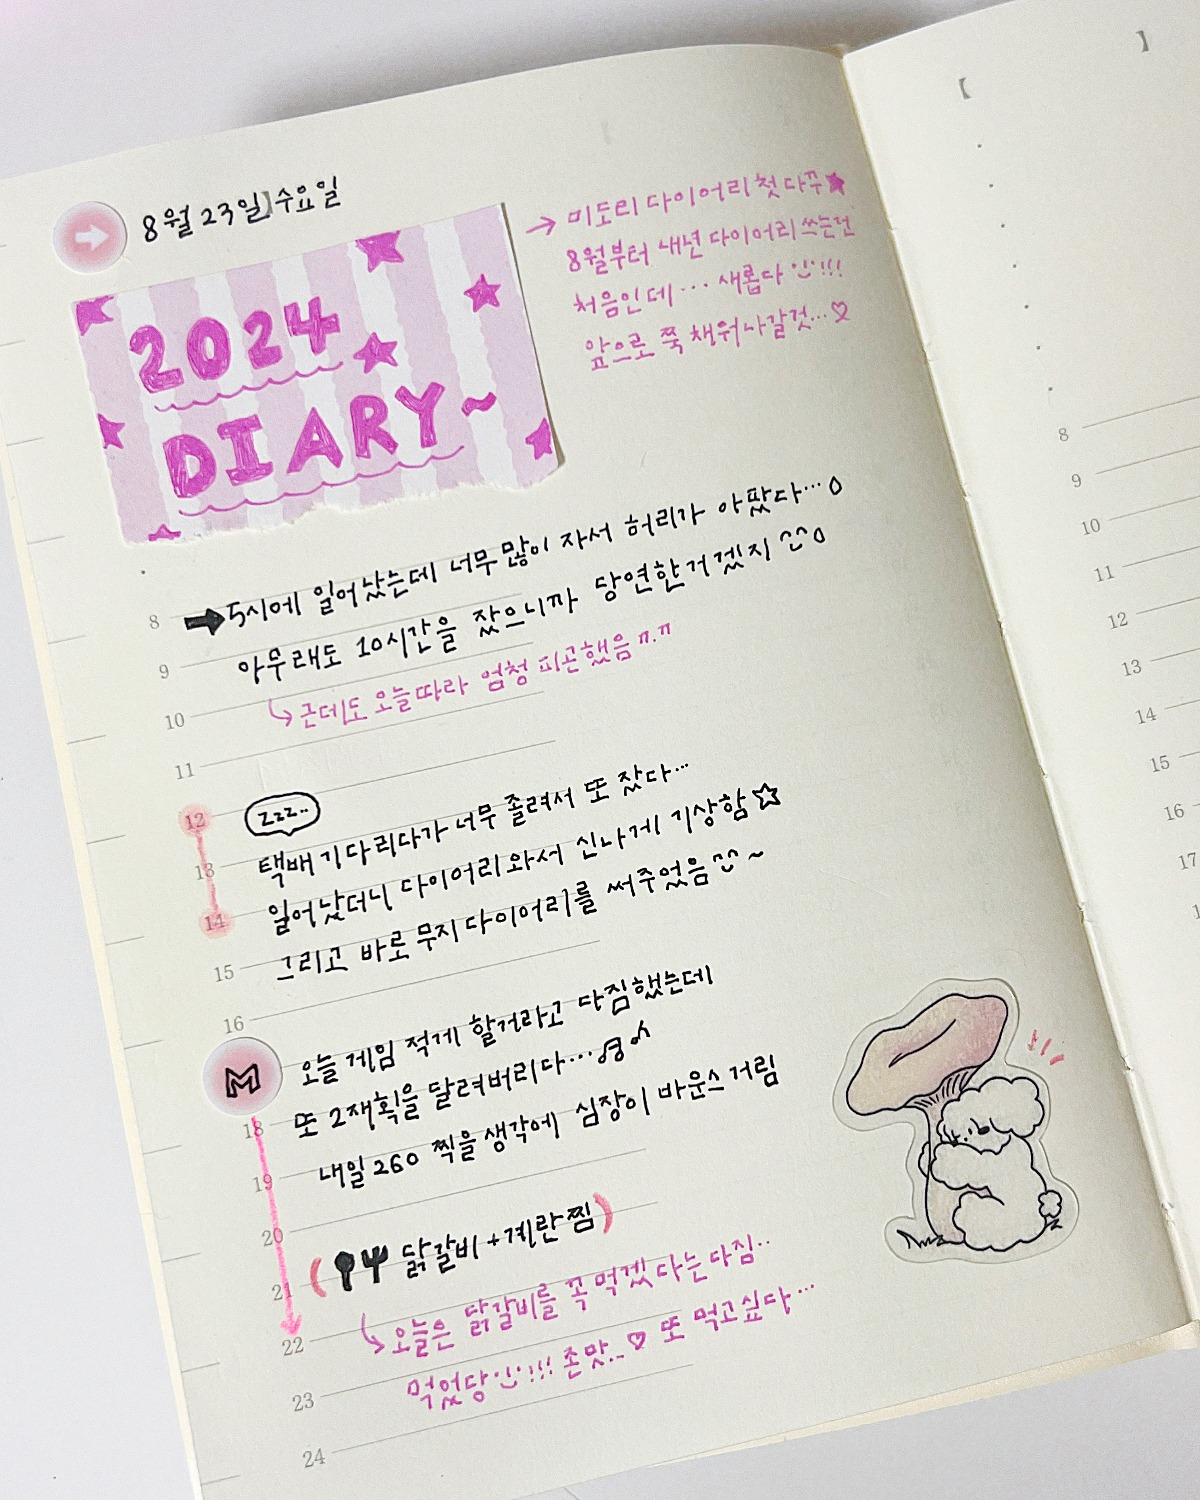 8월 23일 수요일
2024
DIARY~
→ 미도리 다이어리 첫 다꾸★
8월부터 내년 다이어리 쓰는건
처음인데... 새롭다 !!!
앞으로 쭉 채워나갈것...♡
8 ➡ 5시에 일어났는데 너무 많이 자서 허리가 아팠다...
9 아무래도 10시간을 잤으니까 당연한거겠지 ^^
10 ↳ 근데도 오늘따라 엄청 피곤했음 ㅠ.ㅠ
11
12 zzz..
13 택배 기다리다가 너무 졸려서 또 잤다...
14 일어났더니 다이어리와서 신나게 기상함☆
15 그리고 바로 무지다이어리를 써주었음^^~
16
M 오늘 게임 적게 할거라고 다짐했는데
18 또 2재획을 달려버리다...♫♪
19 내일 260 찍을생각에 심장이 바운스거림
20
21 ( 닭갈비+계란찜)
22 ↳ 오늘은 닭갈비를 꼭 먹겠다는다짐..
23 먹었당 !!! 존맛..♡ 또 먹고싶다...
24
【 】
8
9
10
11
12
13
14
15
16
17